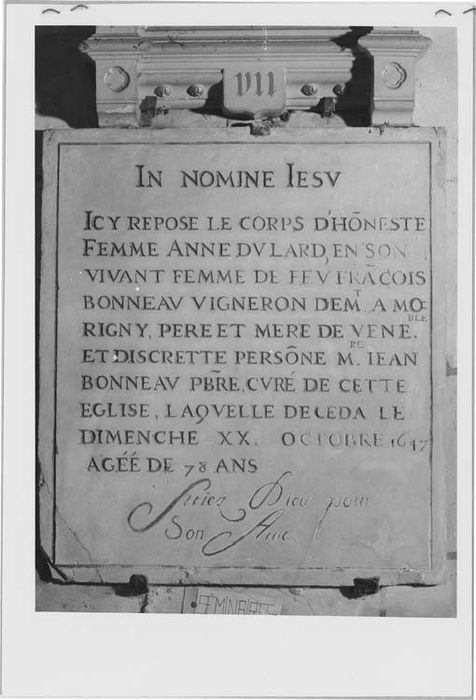 VII
IN NOMINE IESV
ICY REPOSE LE CORPS D'HÕNESTE
FEMME ANNE DVLARD, EN SON
VIVANT FEMME DE FEV FRÃCOIS
BONNEAV VIGNERON DEMT. A MO
RIGNY, PERE ET MERE DE VENEBLE.
ET DISCRETTE PERSÕNE MRE. IEAN
BONNEAV PB̃RE, CVRÉ DE CETTE
EGLISE, LAQVELLE DECEDA LE
DIMENCHE XX. OCTOBRE 1647
AGÉÉ DE 78 ANS
Priez Dieu pour
Son Ame.
SÉMINAIRES